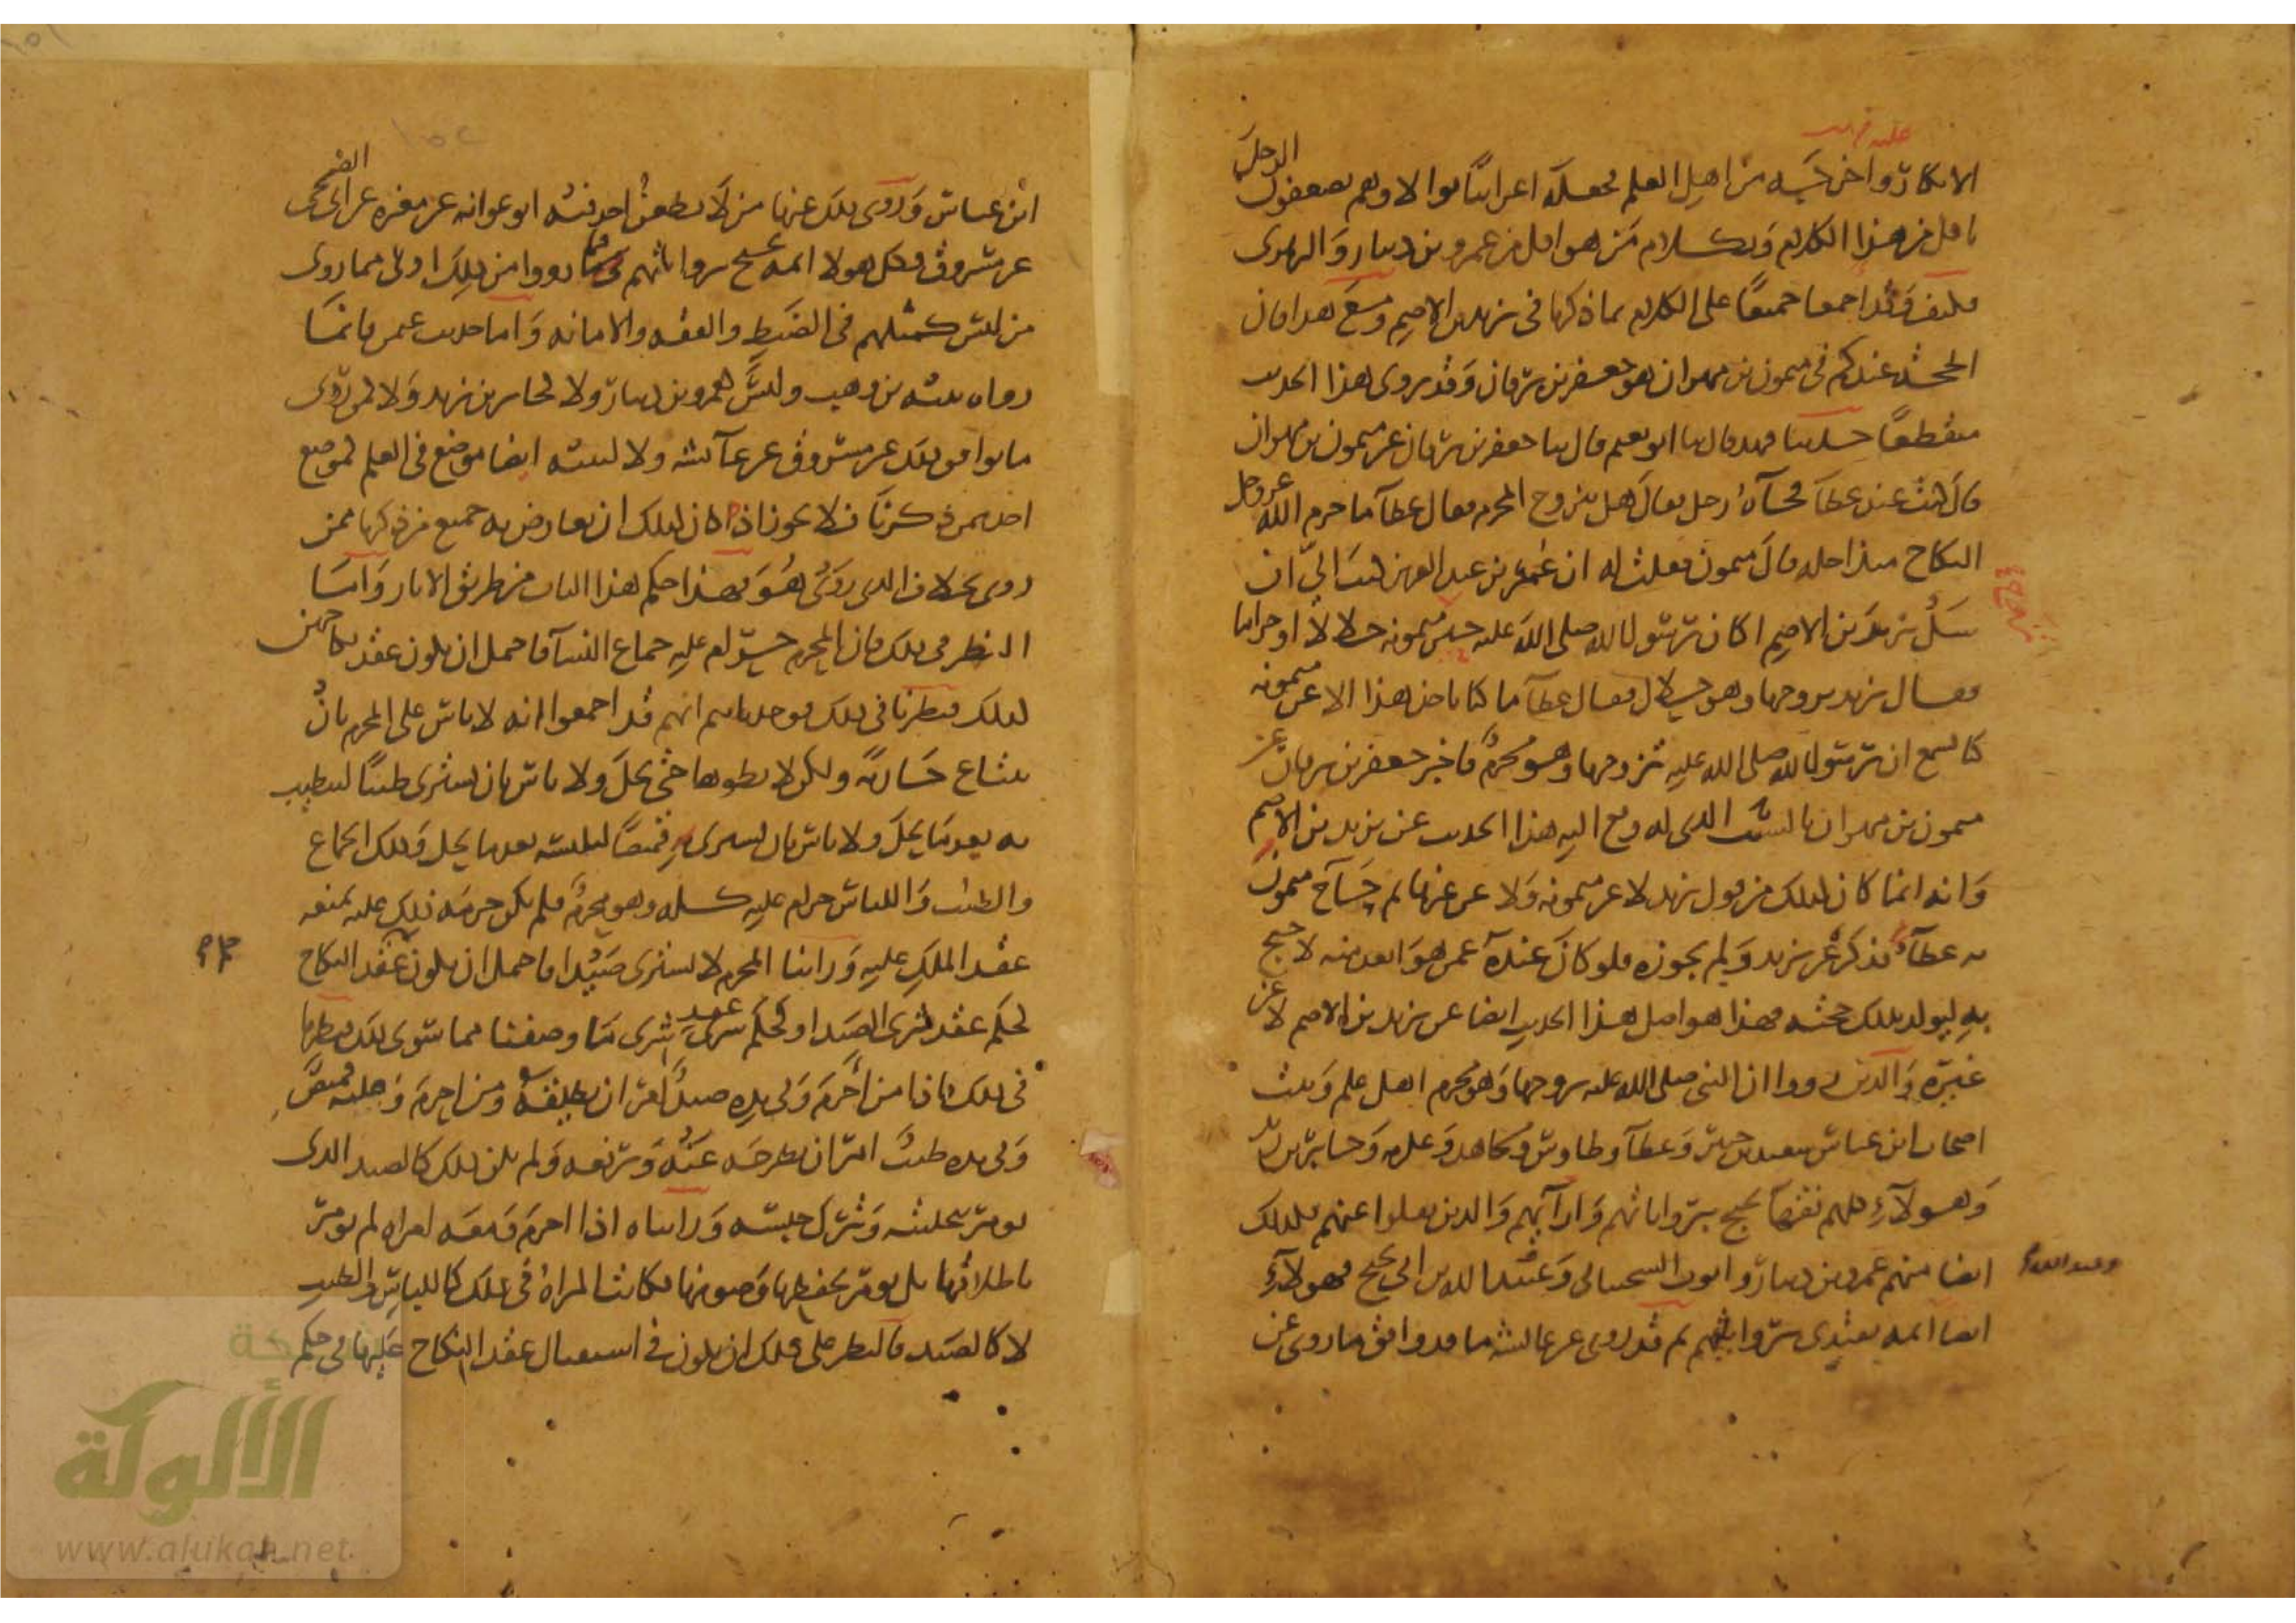 عليه
الانكار واخرجه من اهل العلم فجعله اعرابيا بوالا وهم يضعفون الرجل
باقل من هذا الكلام وبكلام من هو اقل من عمرو بن دينار والزهرى
فكيف وقد اجمعا جميعا على الكلام بما ذكرنا فى يزيد بن الاصم ومع هذا فان
الحجة عندكم فى ميمون بن مهران هو جعفر بن برقان وقد روى هذا الحديث
منقطعا حدثنا فهد قال ثنا ابو نعيم قال ثنا جعفر بن برقان عن ميمون بن مهران
قال كنت عند عطآ فجآه رجل فقال هل يتزوج المحرم فقال عطآ ما حرم الله عز وجل
النكاح منذ احله قال ميمون فقلت له ان عمر بن عبد العزيز كتب الى ان
سل يزيد بن الاصم اكان رسول الله صلى الله عليه حين ميمونه حلالا او حراما
فقال يزيد تزوجها وهو حلال فقال عطآ ما كنا ناخذ هذا الا عن ميمونه
كنا نسمع ان رسول الله صلى الله عليه تزوجها وهو محرم فاخبر جعفر بن برقان عن
ميمون بن مهران بالسبب الذى له وقع اليه هذا الحديث عن يزيد بن الاصم
وانه انما كان ذلك من قول يزيد لا عن ميمونه ولا عن غيرها ثم حآج ميمون
به عطآ فذكره عن يزيد ولم يجوزه فلو كان عنده عمن هو ابعد منه لاحتج
به ليولد بذلك حجته فهذا هو اصل هذا الحديث ايضا عن يزيد بن الاصم لا عن
غيره والذين رووا ان النبى صلى الله عليه تزوجها وهو محرم اهل علم وثبت
اصحاب ابن عباس سعيد بن جبير وعطآ وطاوس ومجاهد وعكرمه وجابر بن زيد
وهولآء كلهم فقهآ يحتج برواياتهم وارآيهم والذين نقلوا عنهم فكذلك
ايضا منهم عمرو بن دينار وايوب السختيانى وعبد الله بن ابى نجيح فهولآء
وعبد الله
ايضا ايمه يقتدى برواياتهم ثم قد روى عن عايشه ما قد وافق ما روى عن
ابن عباس وروى ذلك عنها من لا يطعن احد فيه ابو عوانه عن مغيره عن ابى الضحى
عن مسروق فكل هولا ايمه يحتج برواياتهم فما رووا من ذلك اولى مما روى
من ليس كمثلهم فى الضبط والفقه والامانه واما حديث عثمن فانما
رواه نبيه بن وهب وليس كعمرو بن دينار ولا كجابر بن زيد ولا كمن روى
ما يوافق ذلك عن مسروق عن عآيشه ولا لنبيه ايضا موضع فى العلم كموضع
احد ممن ذكرنا فلا يجوز اذا كان كذلك ان يعارض به جميع من ذكرنا ممن
روى بخلاف الذى روى هو فهذا حكم هذا الباب من طريق الاثار واما
النظر فى ذلك فان المحرم حرام عليه جماع النسآ فاحتمل ان يكون عقد نكاحهن
كذلك فنظرنا فى ذلك فوجدناهم قد اجمعوا انه لا باس على المحرم بان
يبتاع جاريه ولكن لا يطوها حتى يحل ولا باس بان يشترى طيبا ليتطيب
به بعد ما يحل ولا باس بان يشترى قميصا ليلبسه بعد ما يحل وذلك الجماع
والطيب واللباس حرام عليه كله وهو محرم فلم يكن حرمه ذلك عليه تمنعه
عقد الملك عليه وراينا المحرم لا يشترى صيدا فاحتمل ان يكون عقد النكاح
كحكم عقد شرى الصيد او كحكم عقد شرى ما وصفنا مما سوى ذلك فنظرنا
فى ذلك فاذا من احرم وفى يده صيد امر ان يطلقه ومن احرم وعليه قميص
وفى يده طيب امر ان يطرحه عنه ويرفعه ولم يكن ذلك كالصيد الذى
يومر بتخليته وترك حبسه ورايناه اذا احرم ومعه امراه لم يومر
باطلاقها بل يومر بحفظها وصونها فكانت المراة فى ذلك كاللباس والطيب
لا كالصيد فالنظر على ذلك ان يكون فى استقبال عقد النكاح عليها فى حكم
شبكة
الألوكة
www.alukah.net